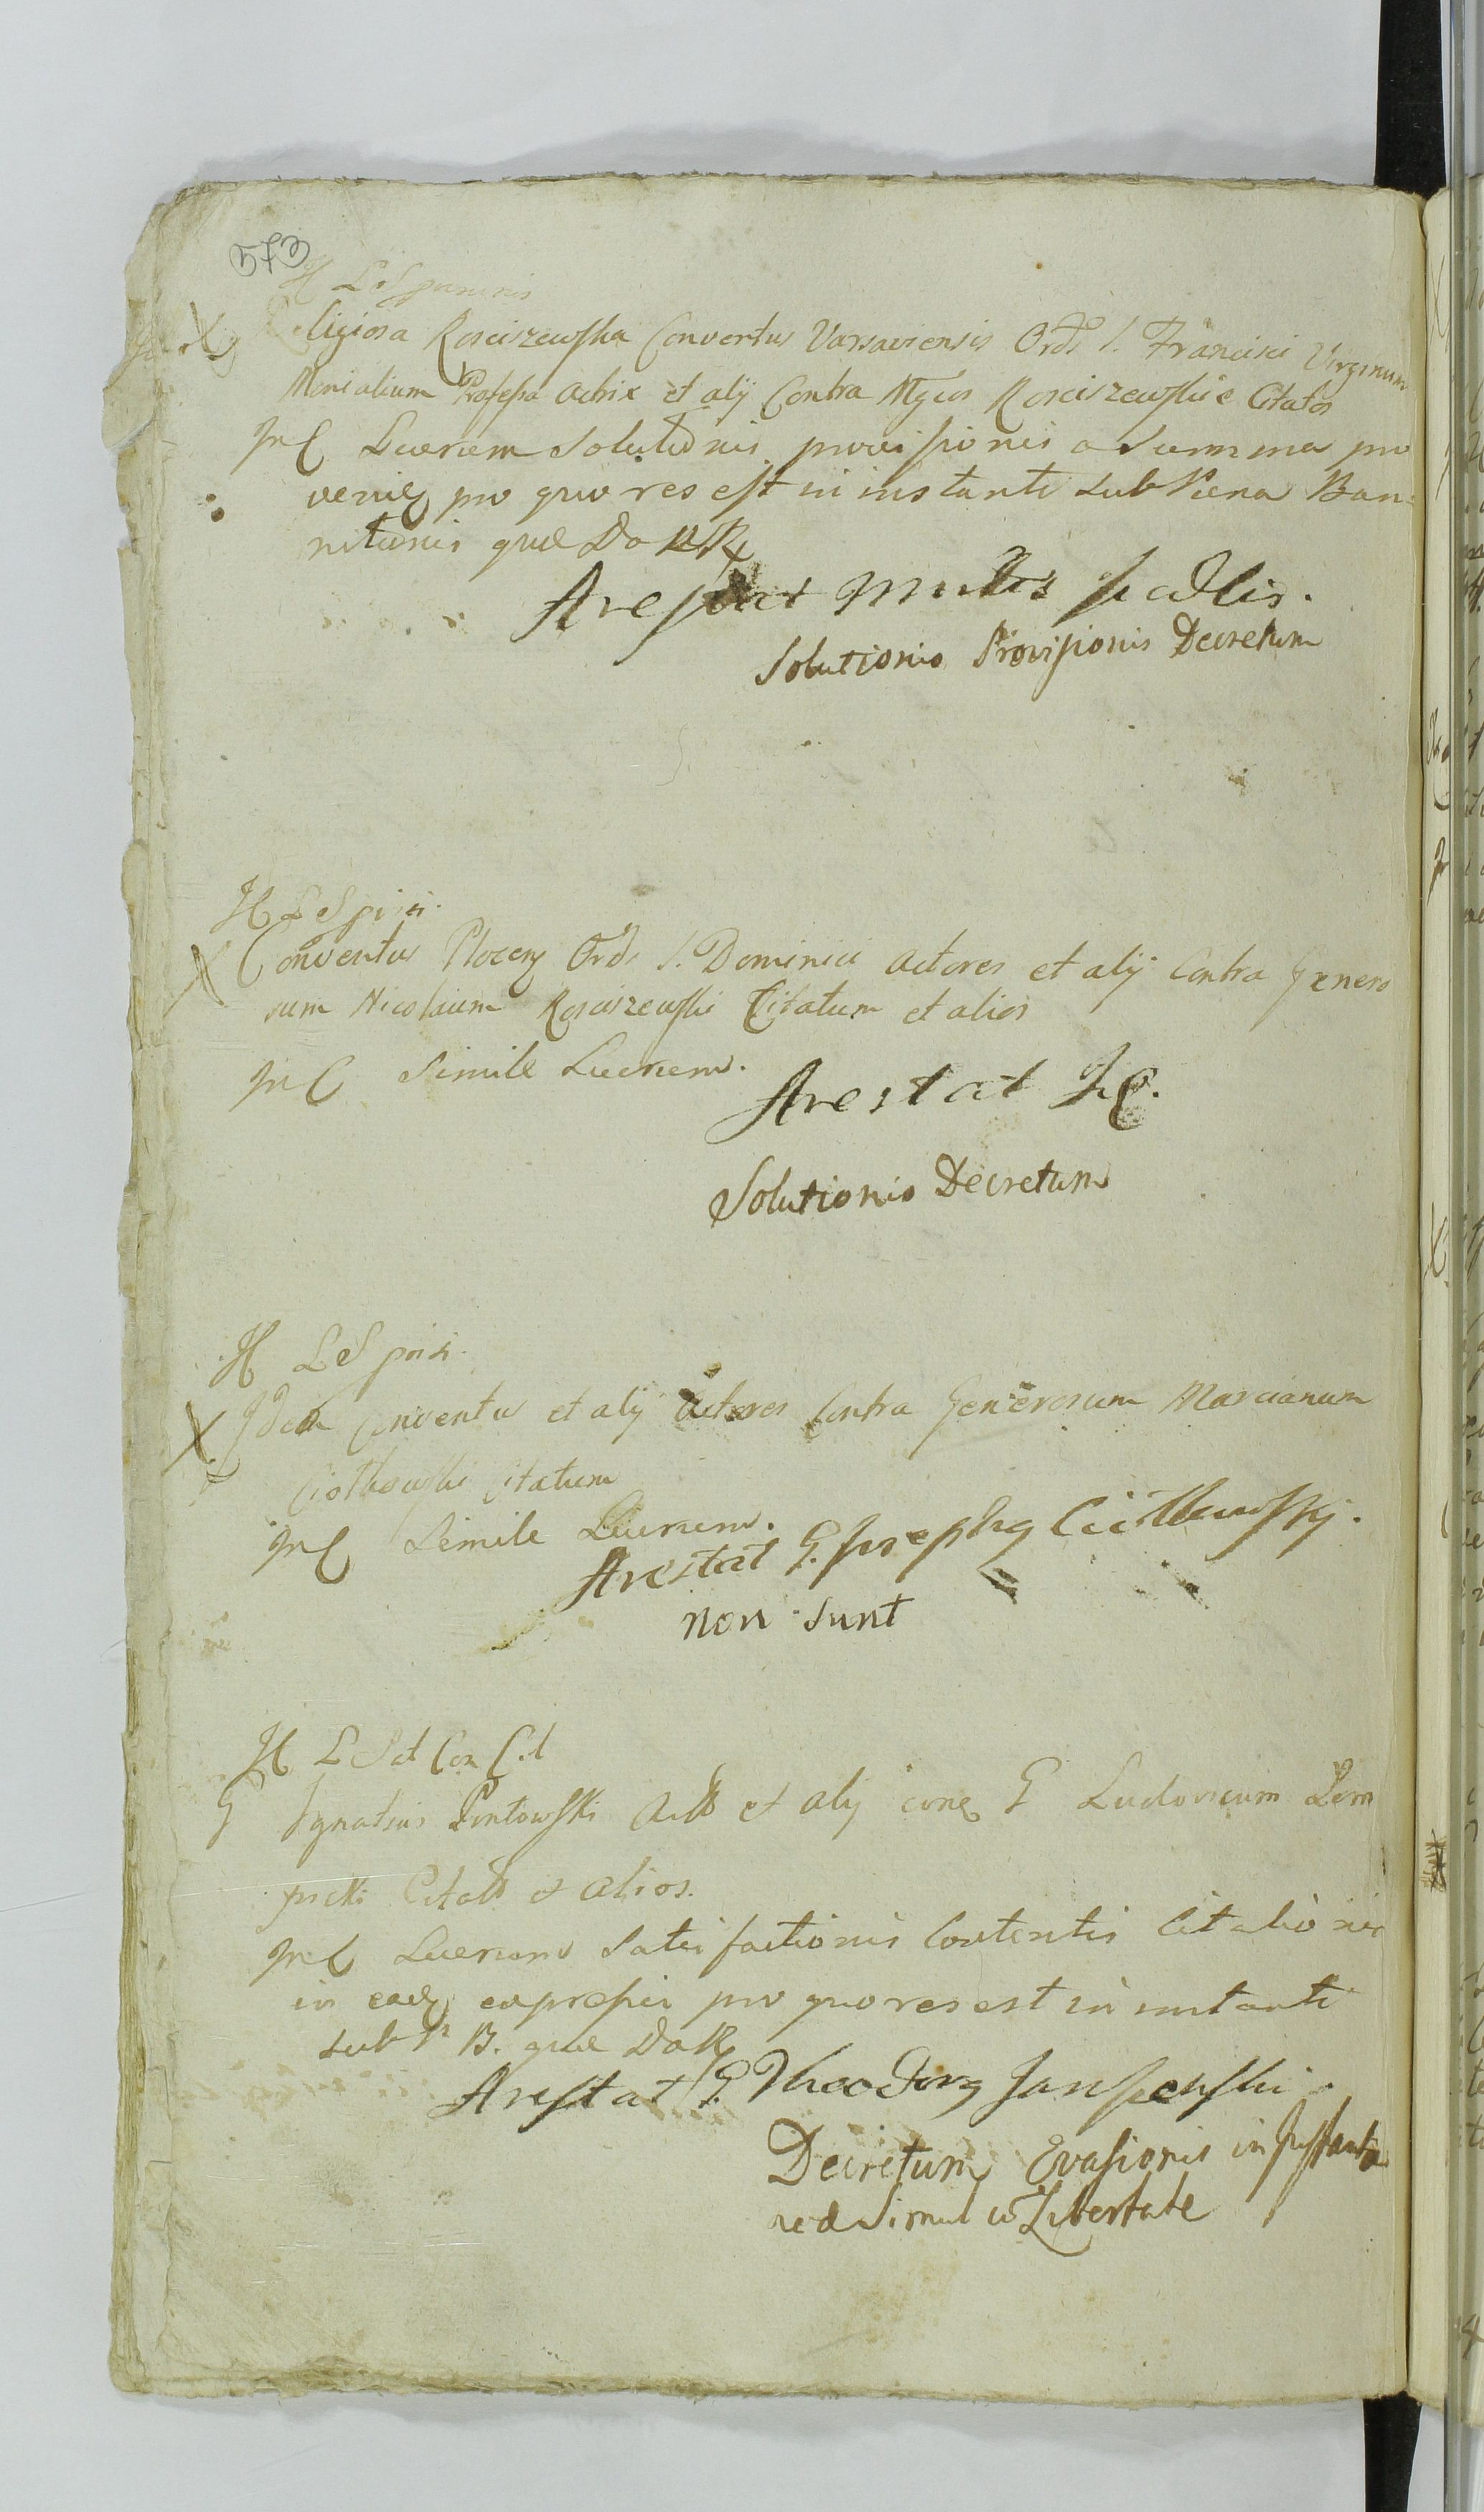 573
Religiosa Rosciszewska Conventus Varsaviensis Ords S. Francisci Virginum
Monialium Professa Actrix et alij Contra Mgcos Rosciszewskie Citatos
Lucrum Solutionis provisionis a Summa pro
venien pro quo res est in instanti sub Pœna Ban-
nitionis quæ Da
Arestat
Solutionis Provisionis Decretum
H L S
Conventus Plocen Ords S. Dominici Actores et alij Contra Genero
sum Nicolaum Rosciszewski Citatum et alios
Simile Lucrum.
Arestat
Solutionis Decretum
H L S
Idem Conventus et alij Actores Contra Generosum Marcianum
Ciołkowski Citatum
Simile Lucrum.
Arestat G. Josephg Ciołkowskj.
non sunt
H L Sat Con Cit
G Ignatius et alij G Ludovicum
et alios.
Lucrum Satisfactionis Contentis Citationis
in eadq expressis pro quo res est in instanti
sub P B. quæ Da
Arestat G. Theodorg
Decretum Evasionis in Instanti
sed Simul cũ Libertate